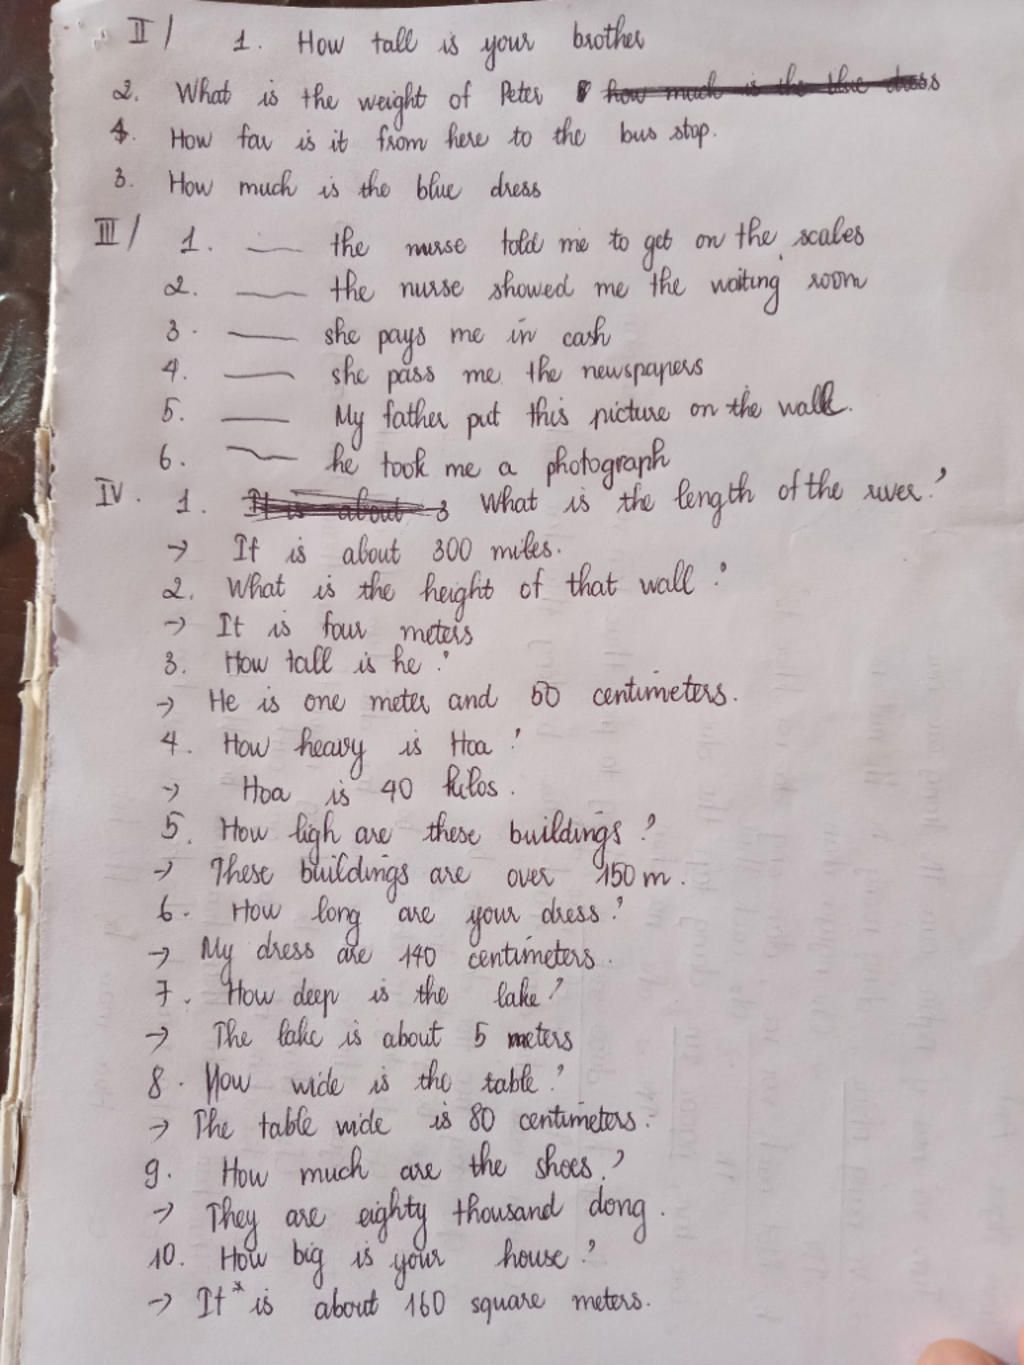 II/ 1. How tall is your brother
2. What is the weight of Peter ? how much is the blue dress
4. How far is it from here to the bus stop.
3. How much is the blue dress
III/ 1. — the nurse told me to get on the scales
2. — the nurse showed me the waiting room
3. — she pays me in cash
4. — she pass me the newspapers
5. — My father put this picture on the wall.
6. — he took me a photograph
IV. 1. It is about 3 What is the length of the river?
→ It is about 300 miles.
2. What is the height of that wall?
→ It is four meters
3. How tall is he?
→ He is one meter and 50 centimeters.
4. How heavy is Hoa?
→ Hoa is 40 kilos.
5. How ligh are these buildings?
→ These buildings are over 150 m.
6. How long are your dress?
→ My dress are 140 centimeters.
7. How deep is the lake?
→ The lake is about 5 meters
8. How wide is the table?
→ The table wide is 80 centimeters.
9. How much are the shoes?
→ They are eighty thousand dong.
10. How big is your house?
→ It * is about 160 square meters.